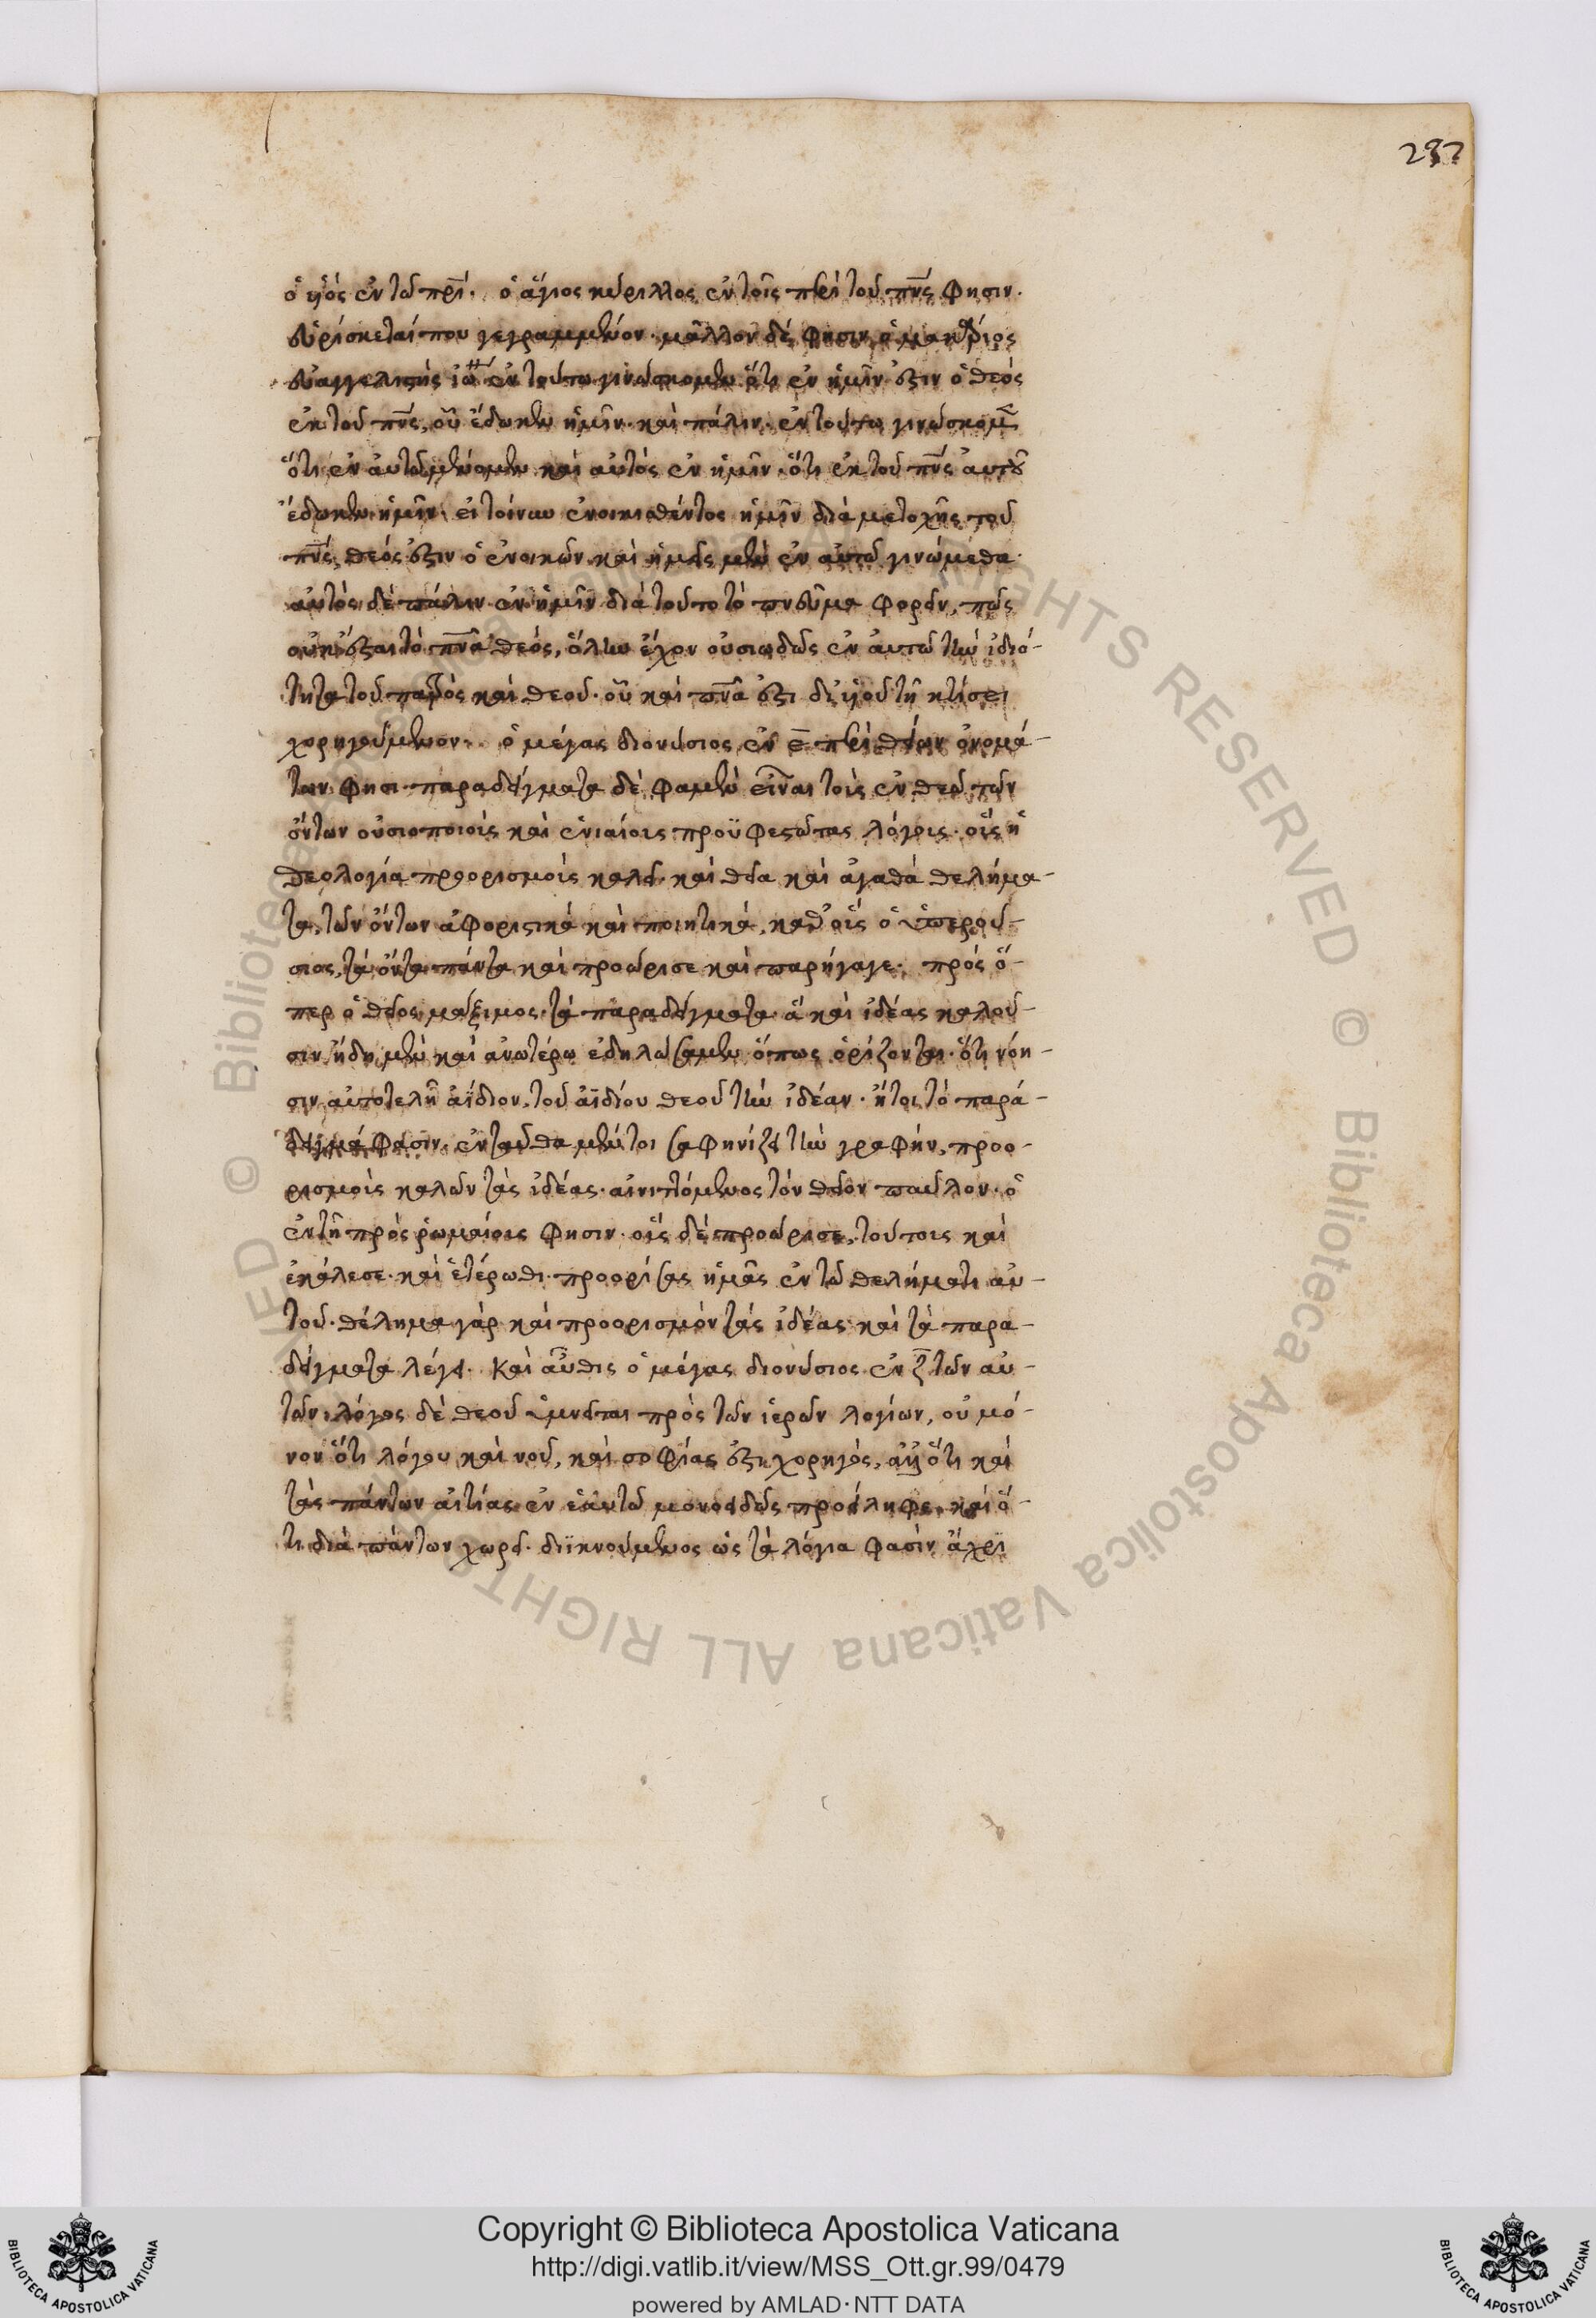 237
ὁ υἱὸς ἐν τῷ πρί. ὁ ἅγιος κύριλλος ἐν τοῖς περὶ τοῦ πνς φησιν.
εὑρίσκεταί που γεγραμμένον. μᾶλλον δέ φησιν ὁ μακάριος
εὐαγγελιστὴς ἰω ἐν τούτῳ γινώσκομεν ὅτι ἐν ἡμῖν ἐστιν ὁ θεὸς
ἐκ τοῦ πνς, οὗ ἔδωκεν ἡμῖν. καὶ πάλιν. ἐν τούτῳ γινώσκομ
ὅτι ἐν αὐτῷ μένομεν καὶ αὐτὸς ἐν ἡμῖν. ὅτι ἐκ τοῦ πνς αὐτοῦ
ἔδωκεν ἡμῖν. εἰ τοίνυν ἐνοικισθέντος ἡμῖν διὰ μετοχῆς τοῦ
πνς, θεός ἐστιν ὁ ἐνοικῶν. καὶ ἡμεῖς μὲν ἐν αὐτῷ γινώμεθα.
αὐτὸς δὲ πάλιν ἐν ἡμῖν διὰ τοῦτο τὸ πνεῦμα φορεῖν, πῶς
οὐκ ἔσται τὸ πνα θεός, ὅλην ἔχον οὐσιωδῶς ἐν αὐτῷ τὴν ἰδιό-
τητα τοῦ πατρὸς καὶ θεοῦ. οὗ καὶ πνα ἐστι δι' υἱοῦ τῇ κτίσει
χορηγούμενον. ὁ μέγας διονύσιος ἐν ε περὶ θείων ὀνομά-
των φησι. παραδείγματα δὲ φαμὲν εἶναι τοὺς ἐν θεῷ τῶν
ὄντων οὐσιοποιοὺς καὶ ἑνιαίους προϋφεστῶτας λόγους. οὓς ἡ
θεολογία προορισμοὺς καλεῖ. καὶ θεῖα καὶ ἀγαθὰ θελήμα-
τα, τῶν ὄντων ἀφοριστικὰ καὶ ποιητικά, καθ' οὓς ὁ ὑπερού-
σιος, τὰ ὄντα πάντα καὶ προώρισε καὶ παρήγαγε. πρὸς ὅ-
περ ὁ θεῖος μάξιμος. τὰ παραδείγματα ἃ καὶ ἰδέας καλοῦ-
σιν ἤδη μὲν καὶ ἀνωτέρω ἐδηλώσαμεν ὅπως ὁρίζονται. ὅτι νόη-
σιν αὐτοτελῆ ἀΐδιον, τοῦ ἀϊδίου θεοῦ τὴν ἰδέαν. ἤτοι τὸ παρά-
δειγμά φασιν. ἐνταῦθα μέντοι σαφηνίζει τὴν γραφήν, προο-
ρισμοὺς καλῶν τὰς ἰδέας. αἰνιττόμενος τὸν θεῖον παῦλον. ὁ
ἐν τῇ πρὸς ῥωμαίους φησιν. οὓς δὲ προώρισε, τούτους καὶ
ἐκάλεσε. καὶ ἑτέρωθι. προορίσας ἡμᾶς ἐν τῷ θελήματι αὐ-
τοῦ. θέλημα γὰρ καὶ προορισμὸν τὰς ἰδέας καὶ τὰ παρα-
δείγματα λέγει. καὶ αὖθις ὁ μέγας διονύσιος ἐν ζ τῶν αὐ-
τῶν. λόγος δὲ θεοῦ ὑμνεῖται πρὸς τῶν ἱερῶν λογίων, οὐ μό-
νον ὅτι λόγου καὶ νοῦ, καὶ σοφίας ἐστι χορηγός, ἀλλ' ὅτι καὶ
τὰς πάντων αἰτίας ἐν ἑαυτῷ μονοειδῶς προείληφε. καὶ ὅ-
τι διὰ πάντων χωρεῖ. διϊκνούμενος ὡς τὰ λόγια φασὶν ἄχρι
Copyright © Biblioteca Apostolica Vaticana
http://digi.vatlib.it/view/MSS_Ott.gr.99/0479
powered by AMLAD·NTT DATA
BIBLIOTECA APOSTOLICA VATICANA
BIBLIOTECA APOSTOLICA VATICANA
© Biblioteca Apostolica Vaticana ALL RIGHTS RESERVED © Biblioteca Apostolica Vaticana ALL RIGHTS RESERVED